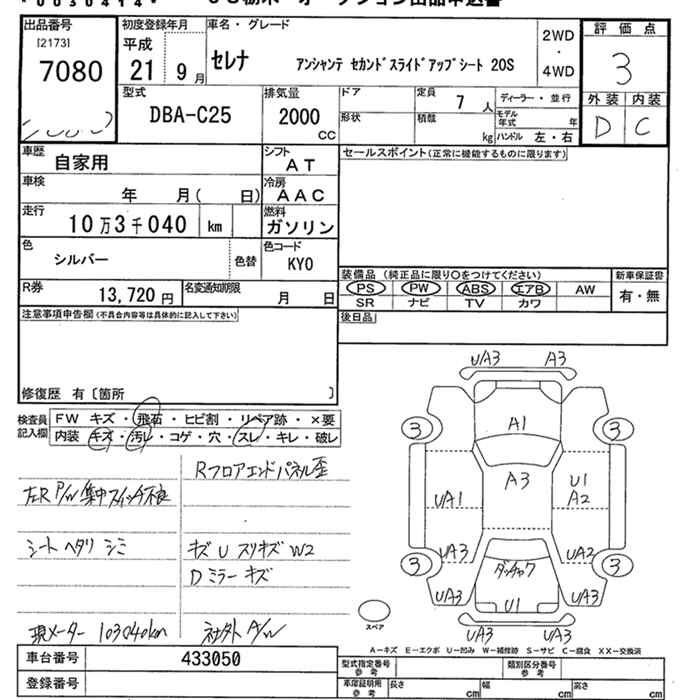 出品番号
[2173]
7080
初度登録年月
平成
21 9月
車名・グレード
セレナ アンシャンテ セカンドスライドアップシート 20S
2WD
・
4WD
評価点
3
外装 内装
D C
型式
DBA-C25
排気量
2000
CC
ドア
形状
定員 7 人
積載 kg
ディーラー・並行
モデル年式 年
ハンドル 左・右
車歴
自家用
シフト
AT
車検
年 月( 日)
冷房
AAC
走行
10万3千040 km
燃料
ガソリン
色
シルバー
色替
色コード
KY0
R券
13,720円
名変通知期限
月 日
セールスポイント(正常に機能するものに限ります)
装備品(純正品に限り○をつけてください)
PS PW ABS エアB AW
SR ナビ TV カワ
新車保証書
有・無
後日品
注意事項申告欄(不具合内容等は具体的に記入して下さい)
修復歴 有〔箇所 〕
検査員記入欄
FW キズ・飛石・ヒビ割・リペア跡・×要
内装 キズ・汚レ・コゲ・穴・スレ・キレ・破レ
Rフロアエンドパネル歪
左R P/W 集中スイッチ不良
シート ヘタリ シミ
キズ U スリキズ W2
D ミラー キズ
現メーター 103040km
社外 A/W
UA3 A3
A1
3 3
A3
UA1
U1
A2
UA3 UA2
3 3
ダッチャク
UA3 U1 UA3
UA3 UA3
スペア
A-キズ E-エクボ U-凹み W-補修跡 S-サビ C-腐食 XX-交換済
車台番号 433050
登録番号
型式指定番号
参考
類別区分番号
参考
車庫証明用
参考
長さ cm
幅 cm
高さ cm